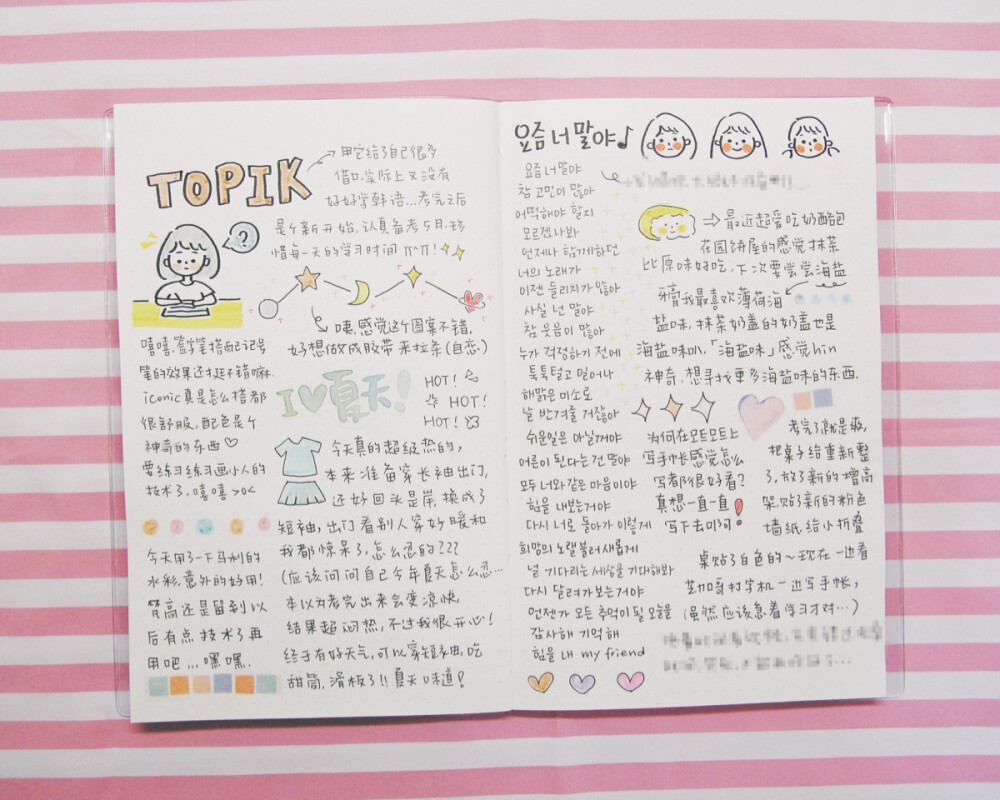 TOPIK
用它给了自己很多
借口,实际上又没有
好好学韩语...考完之后
是个新开始.认真备考5月,珍
惜每一天的学习时间 ㅠㅠ!
?
咦,感觉这个图案不错.
好想做成胶带来拉条(自恋)
嘻嘻.签字笔搭配记号
笔的效果还挺不错嘛.
iconic真是怎么搭都
很舒服,配色是个
神奇的东西♡
要练习练习画小人的
技术了.嘻嘻 >o<
今天用了一下马利的
水彩,意外的好用!
梵高还是留到以
后有点技术了再
用吧...嘿嘿.
I♡夏天!
HOT!
HOT!
HOT!
今天真的超级热的,
本来准备穿长袖出门,
还好回头是岸,换成了
短袖,出门看别人穿好暖和
我都惊呆了,怎么忍的???
(应该问问自己今年夏天怎么忍...
本以为考完出来会变凉快,
结果超闷热,不过我很开心!
终于有好天气,可以穿短袖,吃
甜筒,滑板了!!夏天味道!
요즘 너 말야♪
요즘 너 말야
참 고민이 많아
어떡해야 할지
모르겠나봐
언제나 함께하던
너의 노래가
이젠 들리지가 않아
사실 넌 말야
참 웃음이 많아
누가 걱정하기 전에
툭툭 털고 일어나
해맑은 미소로
날 반겨줄 거잖아
쉬운일은 아닐거야
어른이 된다는 건 말야
모두 너와 같은 마음이야
힘을 내보는거야
다시 너로 돌아가 이렇게
희망의 노랠 불러 새롭게
널 기다리는 세상을 기대해봐
다시 달려가보는거야
언젠가 모든 추억이 될 오늘을
감사해 기억해
힘을 내 my friend
⇨最近超爱吃奶酪包
花园饼屋的感觉抹茶
比原味好吃,下次要尝尝海盐
牙膏我最喜欢薄荷海
盐味,抹茶奶盖的奶盖也是
海盐味叭.「海盐味」感觉hin
神奇,想寻找更多海盐味的东西.
为何在モトモト上
写手帐感觉怎么
写都很好看?
真想一直一直
写下去啊!
考完了就是爽,
把桌子给重新整
了,放了新的增高
架.贴了新的粉色
墙纸,给小折叠
桌贴了白色的~现在一边看
芝加哥打字机一边写手帐,
(虽然应该急着学习才对...)